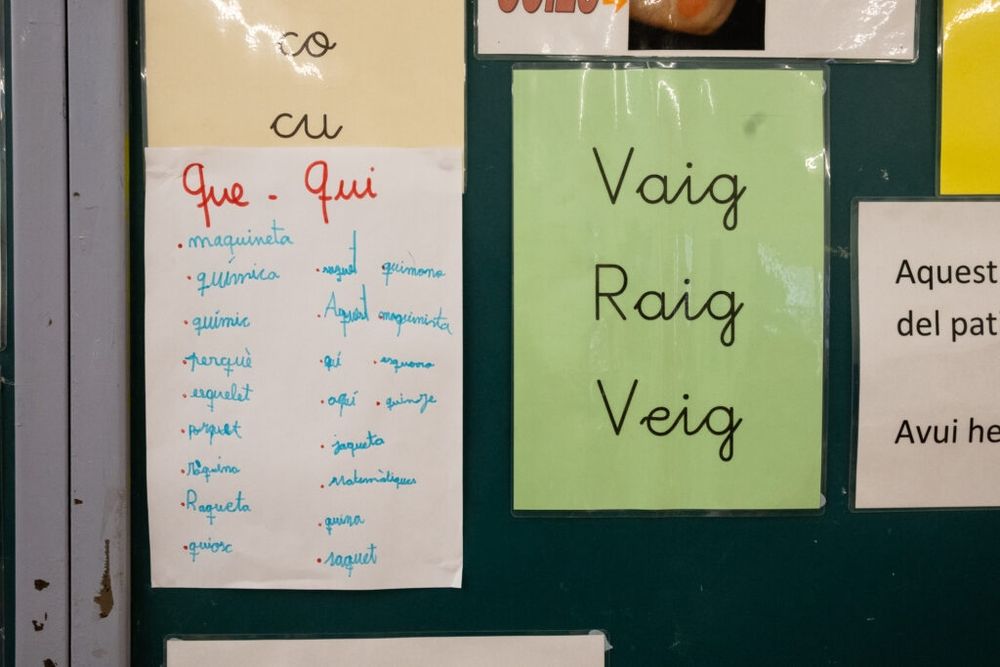 co
cu
Que - Qui
maquineta
química
químic
perquè
esquelet
Raqueta
quiosc
raquet quimono
Aquest maquinista
qui
aquí quinze
jaqueta
Matemàtiques
quina
saquet
Vaig
Raig
Veig
Aquest
del pati
Avui he